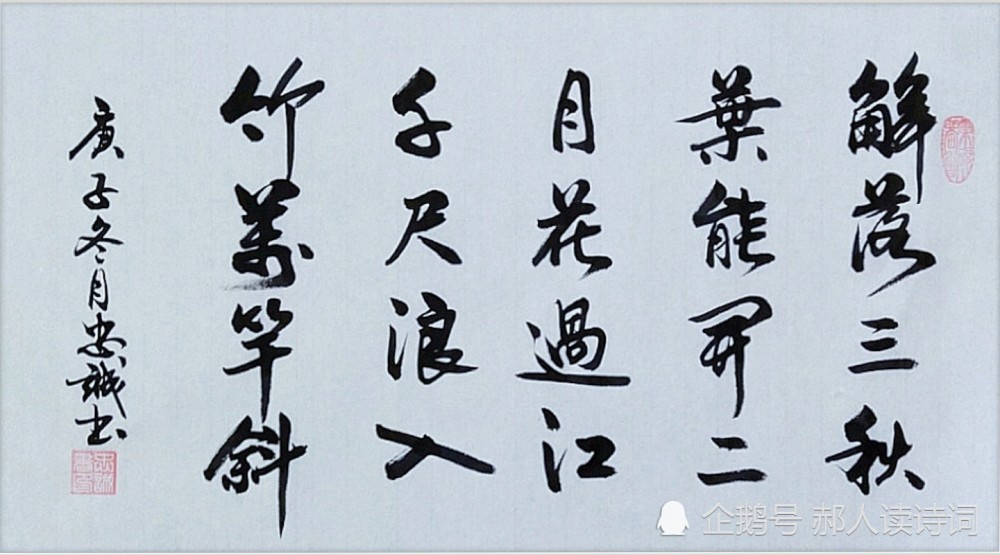 解落三秋
葉能開二
月花過江
千尺浪入
竹萬竿斜
庚子冬月忠誠书
企鹅号 郝人读诗词